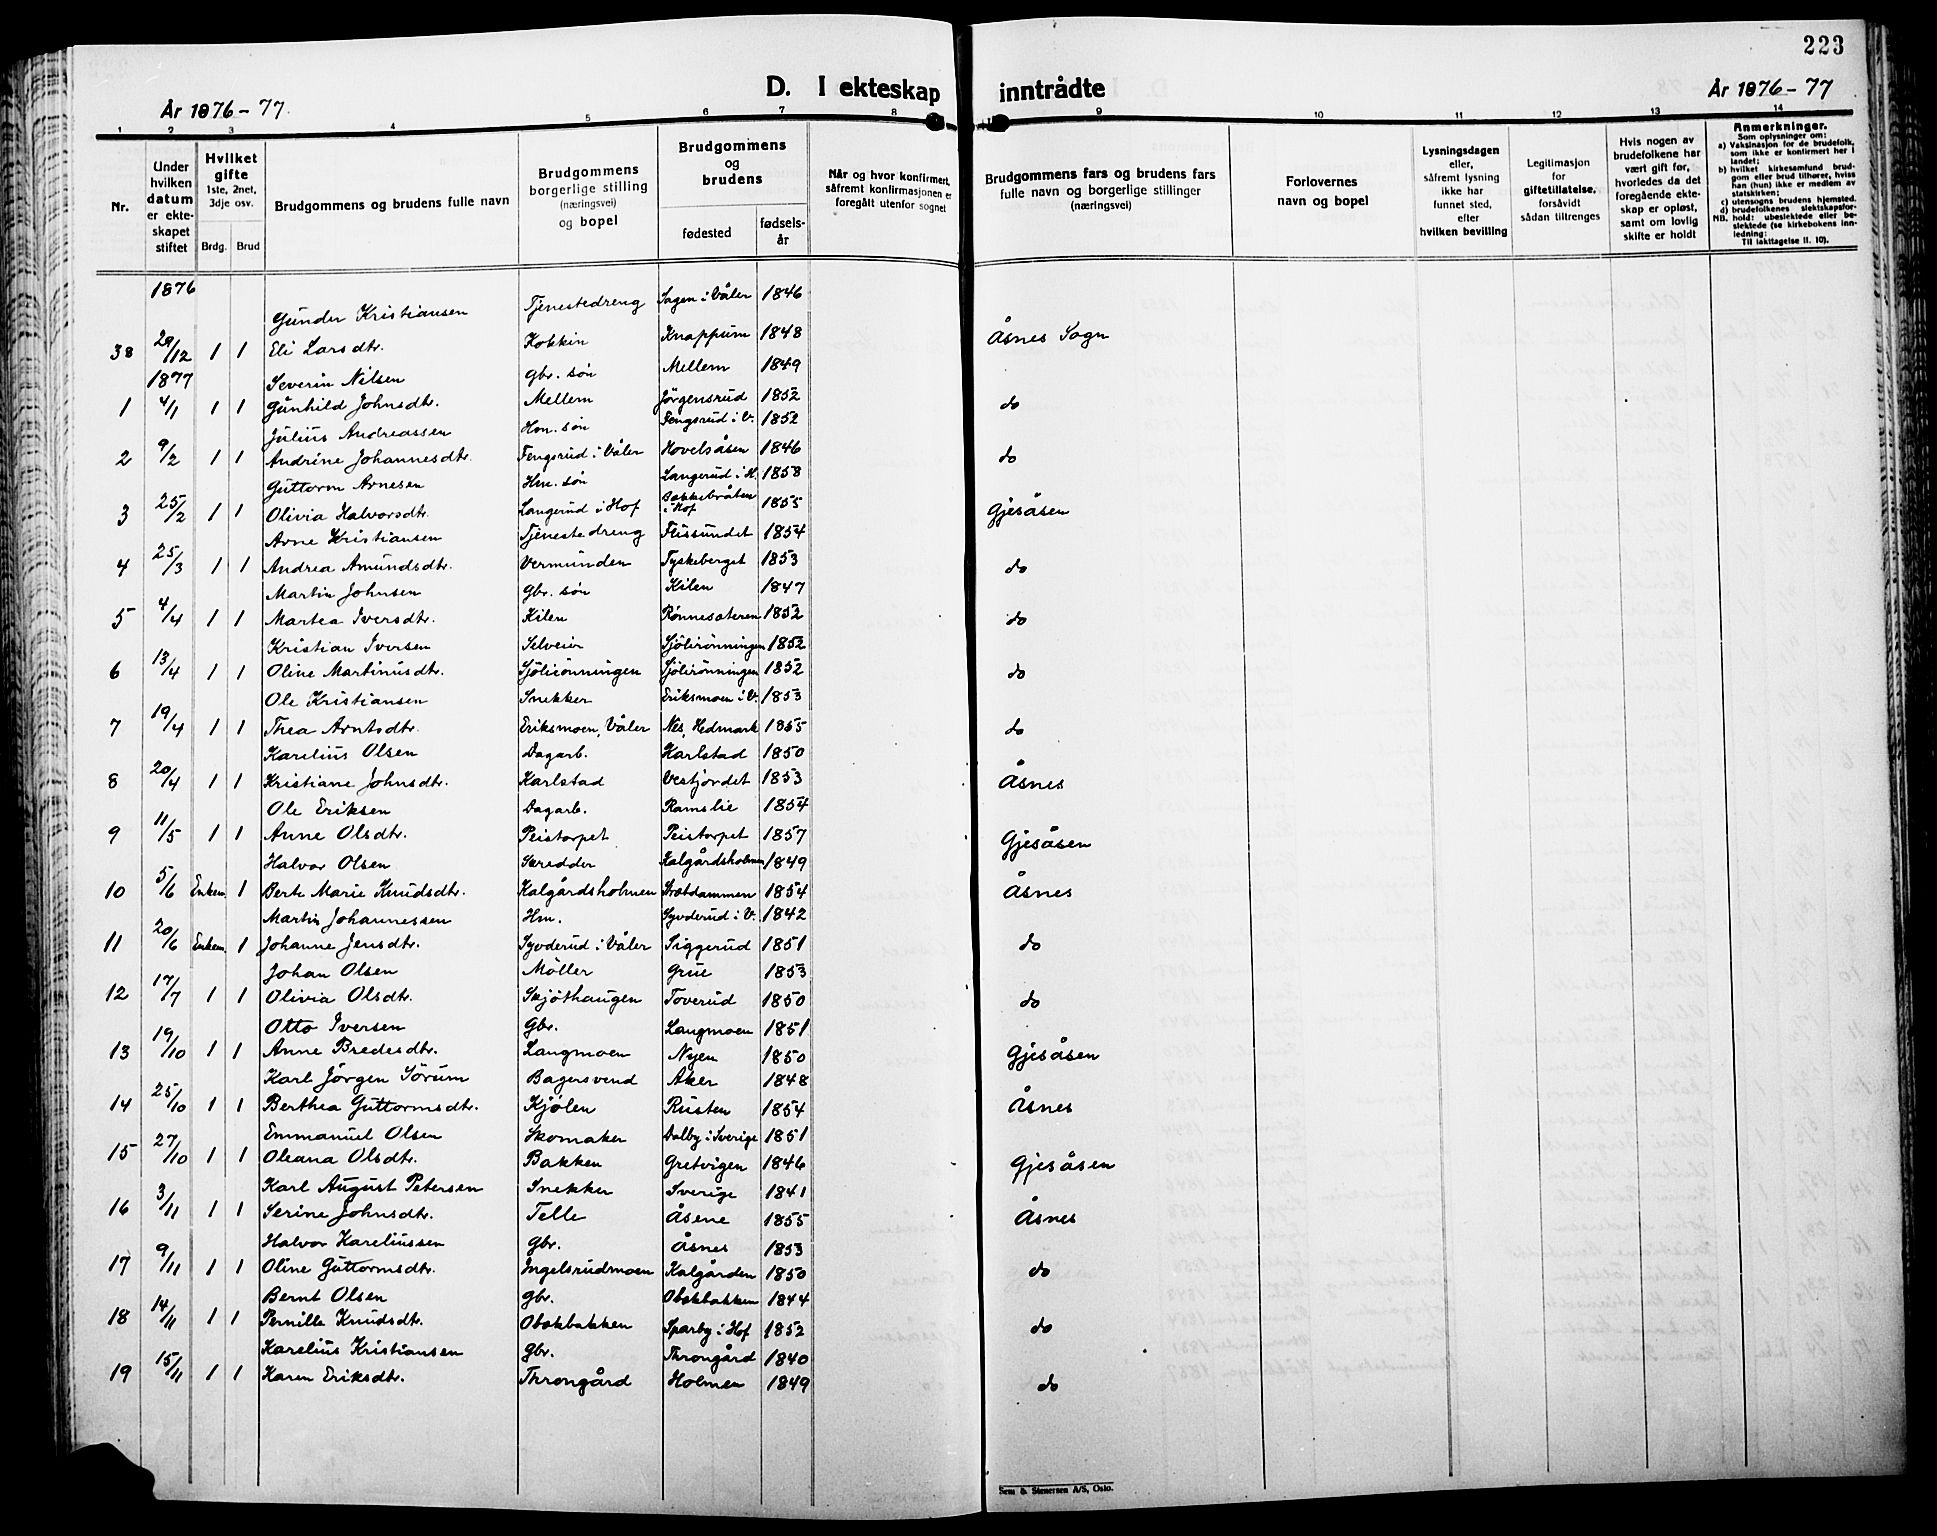 223
D. I ekteskap inntrådte
År 1876-77.
År 1876-77
1 2 3 4 5 6 7 8 9 10 11 12 13 14
Nr.
Under hvilken datum er ekteskapet stiftet
Hvilket gifte 1ste, 2net, 3dje osv.
Brdg. Brud
Brudgommens og brudens fulle navn
Brudgommens borgerlige stilling (næringsvei) og bopel
Brudgommens og brudens
fødested fødselsår
Når og hvor konfirmert, såfremt konfirmasjonen er foregått utenfor sognet
Brudgommens fars og brudens fars fulle navn og borgerlige stillinger (næringsvei)
Forlovernes navn og bopel
Lysningsdagen eller, såfremt lysning ikke har funnet sted, efter hvilken bevilling
Legitimasjon for giftetillatelse, forsåvidt sådan tiltrenges
Hvis nogen av brudefolkene har vært gift før, hvorledes da det foregående ekteskap er opløst, samt om lovlig skifte er holdt
Anmerkninger.
Som oplysninger om:
a) Vaksinasjon for de brudefolk, som ikke er konfirmert her i landet;
b) hvilket kirkesamfund brudgom eller brud tilhører, hviss han (hun) ikke er medlem av statskirken;
c) utensogns brudens hjemsted.
d) brudefolkenes slektskapsforhold: ubeslektede eller beslektede (se kirkebokens innledning:
NB.
Til iakttagelse II. 10).
1876
Gunder Kristiansen Tjenestedreng Sagen i Våler 1846
38 28/12 1 1 Eli Larsdtr. Kokkin Knappum 1848 Åsnes Sogn
1877
Severin Nilsen Gbr. søn Mellem 1849
1 4/1 1 1 Gunhild Johnsdtr. Mellem Jörgensrud 1852 do
Julius Andreassen Hm. søn Fengsrud i V. 1852
2 9/2 1 1 Andrine Johannesdtr. Fengsrud i Våler Hovelsåsen 1846 do
Guttorm Arnesen Hm. søn Langerud i H. 1858
3 25/2 1 1 Olivia Halvorsdtr. Langerud i Hof Bakkebråten i Hof 1855 Gjesåsen
Arne Kristiansen Tjenestedreng Flissundet 1854
4 25/3 1 1 Andrea Amundsdtr. Vermunden Tyskeberget 1853 do
Martin Johnsen Gbr. søn Kilen 1847
5 4/4 1 1 Martea Iversdtr. Kilen Rønnesæteren 1852 do
Kristian Iversen Selveier Sjölirönningen 1852
6 13/4 1 1 Oline Martinusdtr. Sjölirönningen Sjölirönningen 1852 do
Ole Kristiansen Snekker Eriksmoen i V. 1853
7 19/4 1 1 Thea Arntsdtr. Eriksmoen, Våler Nes, Hedmark 1855 do
Karelius Olsen Dagarb. Karlstad 1850
8 20/4 1 1 Kristiane Johnsdtr. Karlstad Vestjordet 1853 Åsnes
Ole Eriksen Dagarb. Ramslie 1854
9 11/5 1 1 Anne Olsdtr. Peistorpet Peistorpet 1857 Gjesåsen
Halvor Olsen Skredder Kalgårdsholmen 1849
10 5/6 Enkem. 1 Berte Marie Knudsdtr. Kalgårdsholmen Brætdammen 1854 Åsnes
Martin Johannessen Hm. Syvderud i V. 1842
11 20/6 Enkem. 1 Johanne Jensdtr. Syvderud i Våler Siggerud 1851 do
Johan Olsen Möller Grue 1853
12 17/7 1 1 Olivia Olsdtr. Skjöthaugen Toverud 1850 do
Otto Iversen Gbr. Langmoen 1851
13 19/10 1 1 Anne Bredesdtr. Langmoen Nyen 1850 Gjesåsen
Karl Jörgen Sörum Bagersvend Aker 1848
14 25/10 1 1 Berthea Guttormsdtr. Kjölen Rusten 1854 Åsnes
Emmanuel Olsen Skomaker Dalby i Sverige 1851
15 27/10 1 1 Oleana Olsdtr. Bakken Gretvigen 1846 Gjesåsen
Karl August Petersen Snekker Sverige 1841
16 3/11 1 1 Serine Johnsdtr. Telle Åsene 1855 Åsnes
Halvor Kareliussen Gbr. Åsnes 1853
17 9/11 1 1 Oline Guttormsdtr. Ingelsrudmoen Kalgården 1850 do
Bernt Olsen Gbr. Obakbakken 1844
18 14/11 1 1 Pernille Knudsdtr. Obakbakken Sparby i Hof 1852 do
Karelius Kristiansen Gbr. Throngård 1840
19 15/11 1 1 Karen Eriksdtr. Throngård Holmen 1849 do
Sem & Stenersen A/S, Oslo.